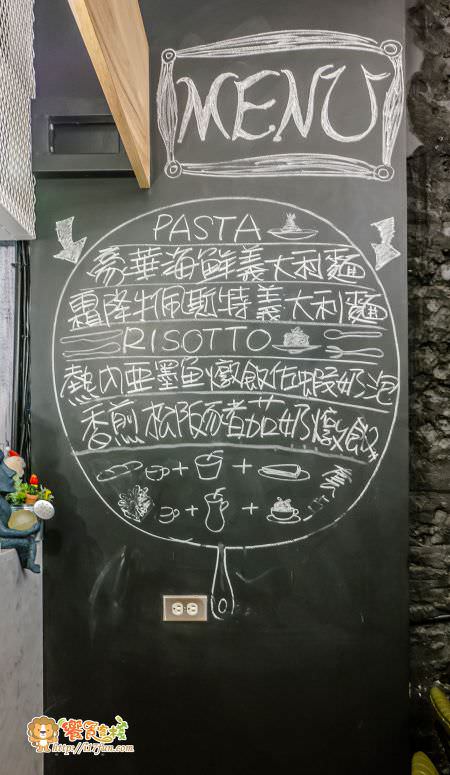 MENU
PASTA
豪華海鮮義大利麵
霜降牛佩斯特義大利麵
RISOTTO
熱內亞墨魚燉飯佐蝦奶泡
香煎松阪豬番茄奶燉飯
+ +
+ +
饗食生技
http://117fun.com